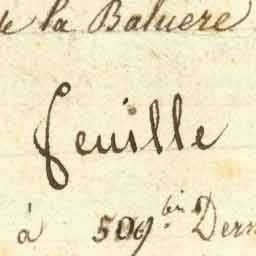 de la Baluere
feuille
à 509 bis Dern